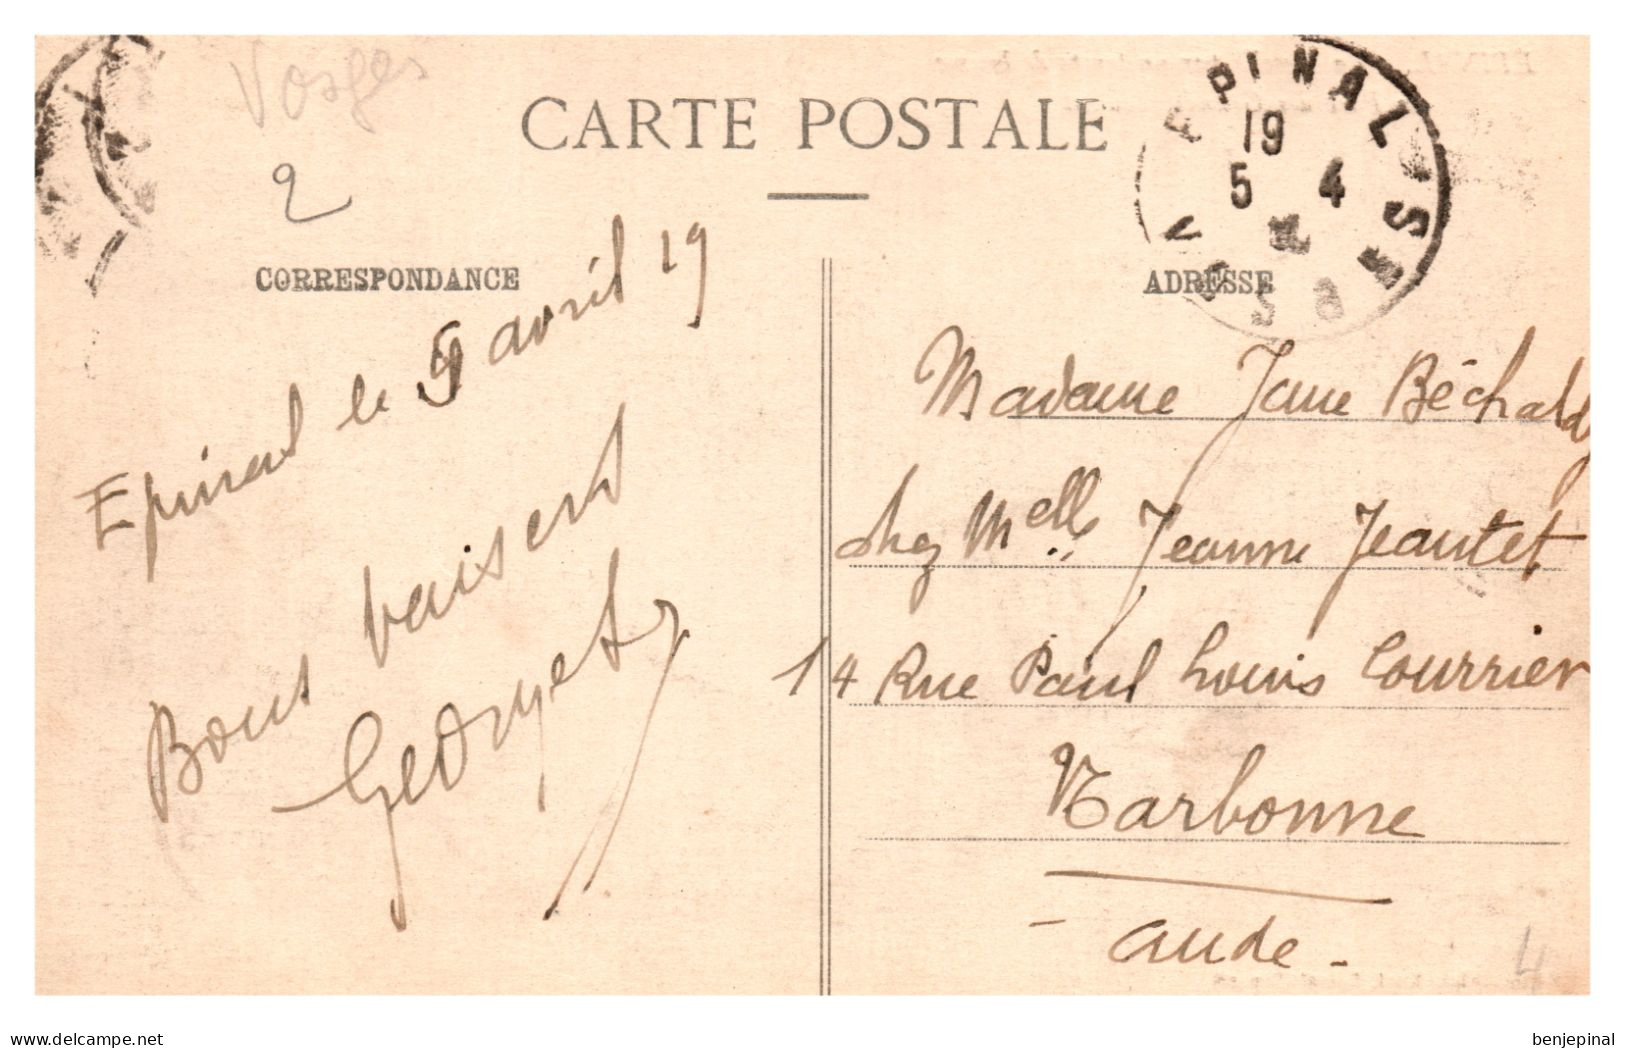 Vosges
2
CARTE POSTALE
EPINAL
19
5 4
VOSGES
CORRESPONDANCE
Epinal le 5 avril 19
Bons baisers
Georget
ADRESSE
Madame Jane Béchaldy
chez Melle Jeanne Jeantet
14 Rue Paul Louis Courrier
Narbonne
Aude -
4
www.delcampe.net
benjepinal